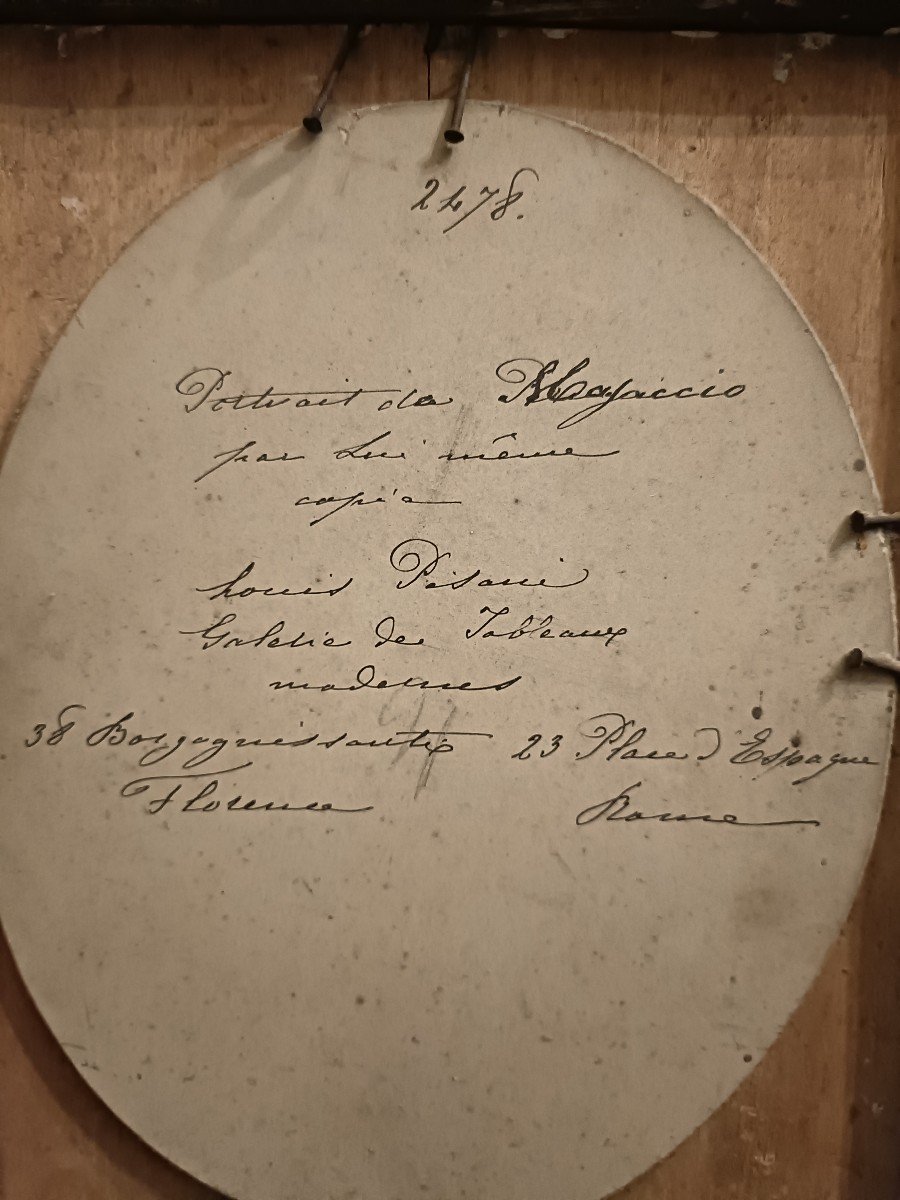 2478.
Portrait de Masaccio
par Lui même
copie
Louis Pisani
Galerie de Tableaux
modernes
38 Borgognissanti 23 Place d'Espagne
Florence Rome